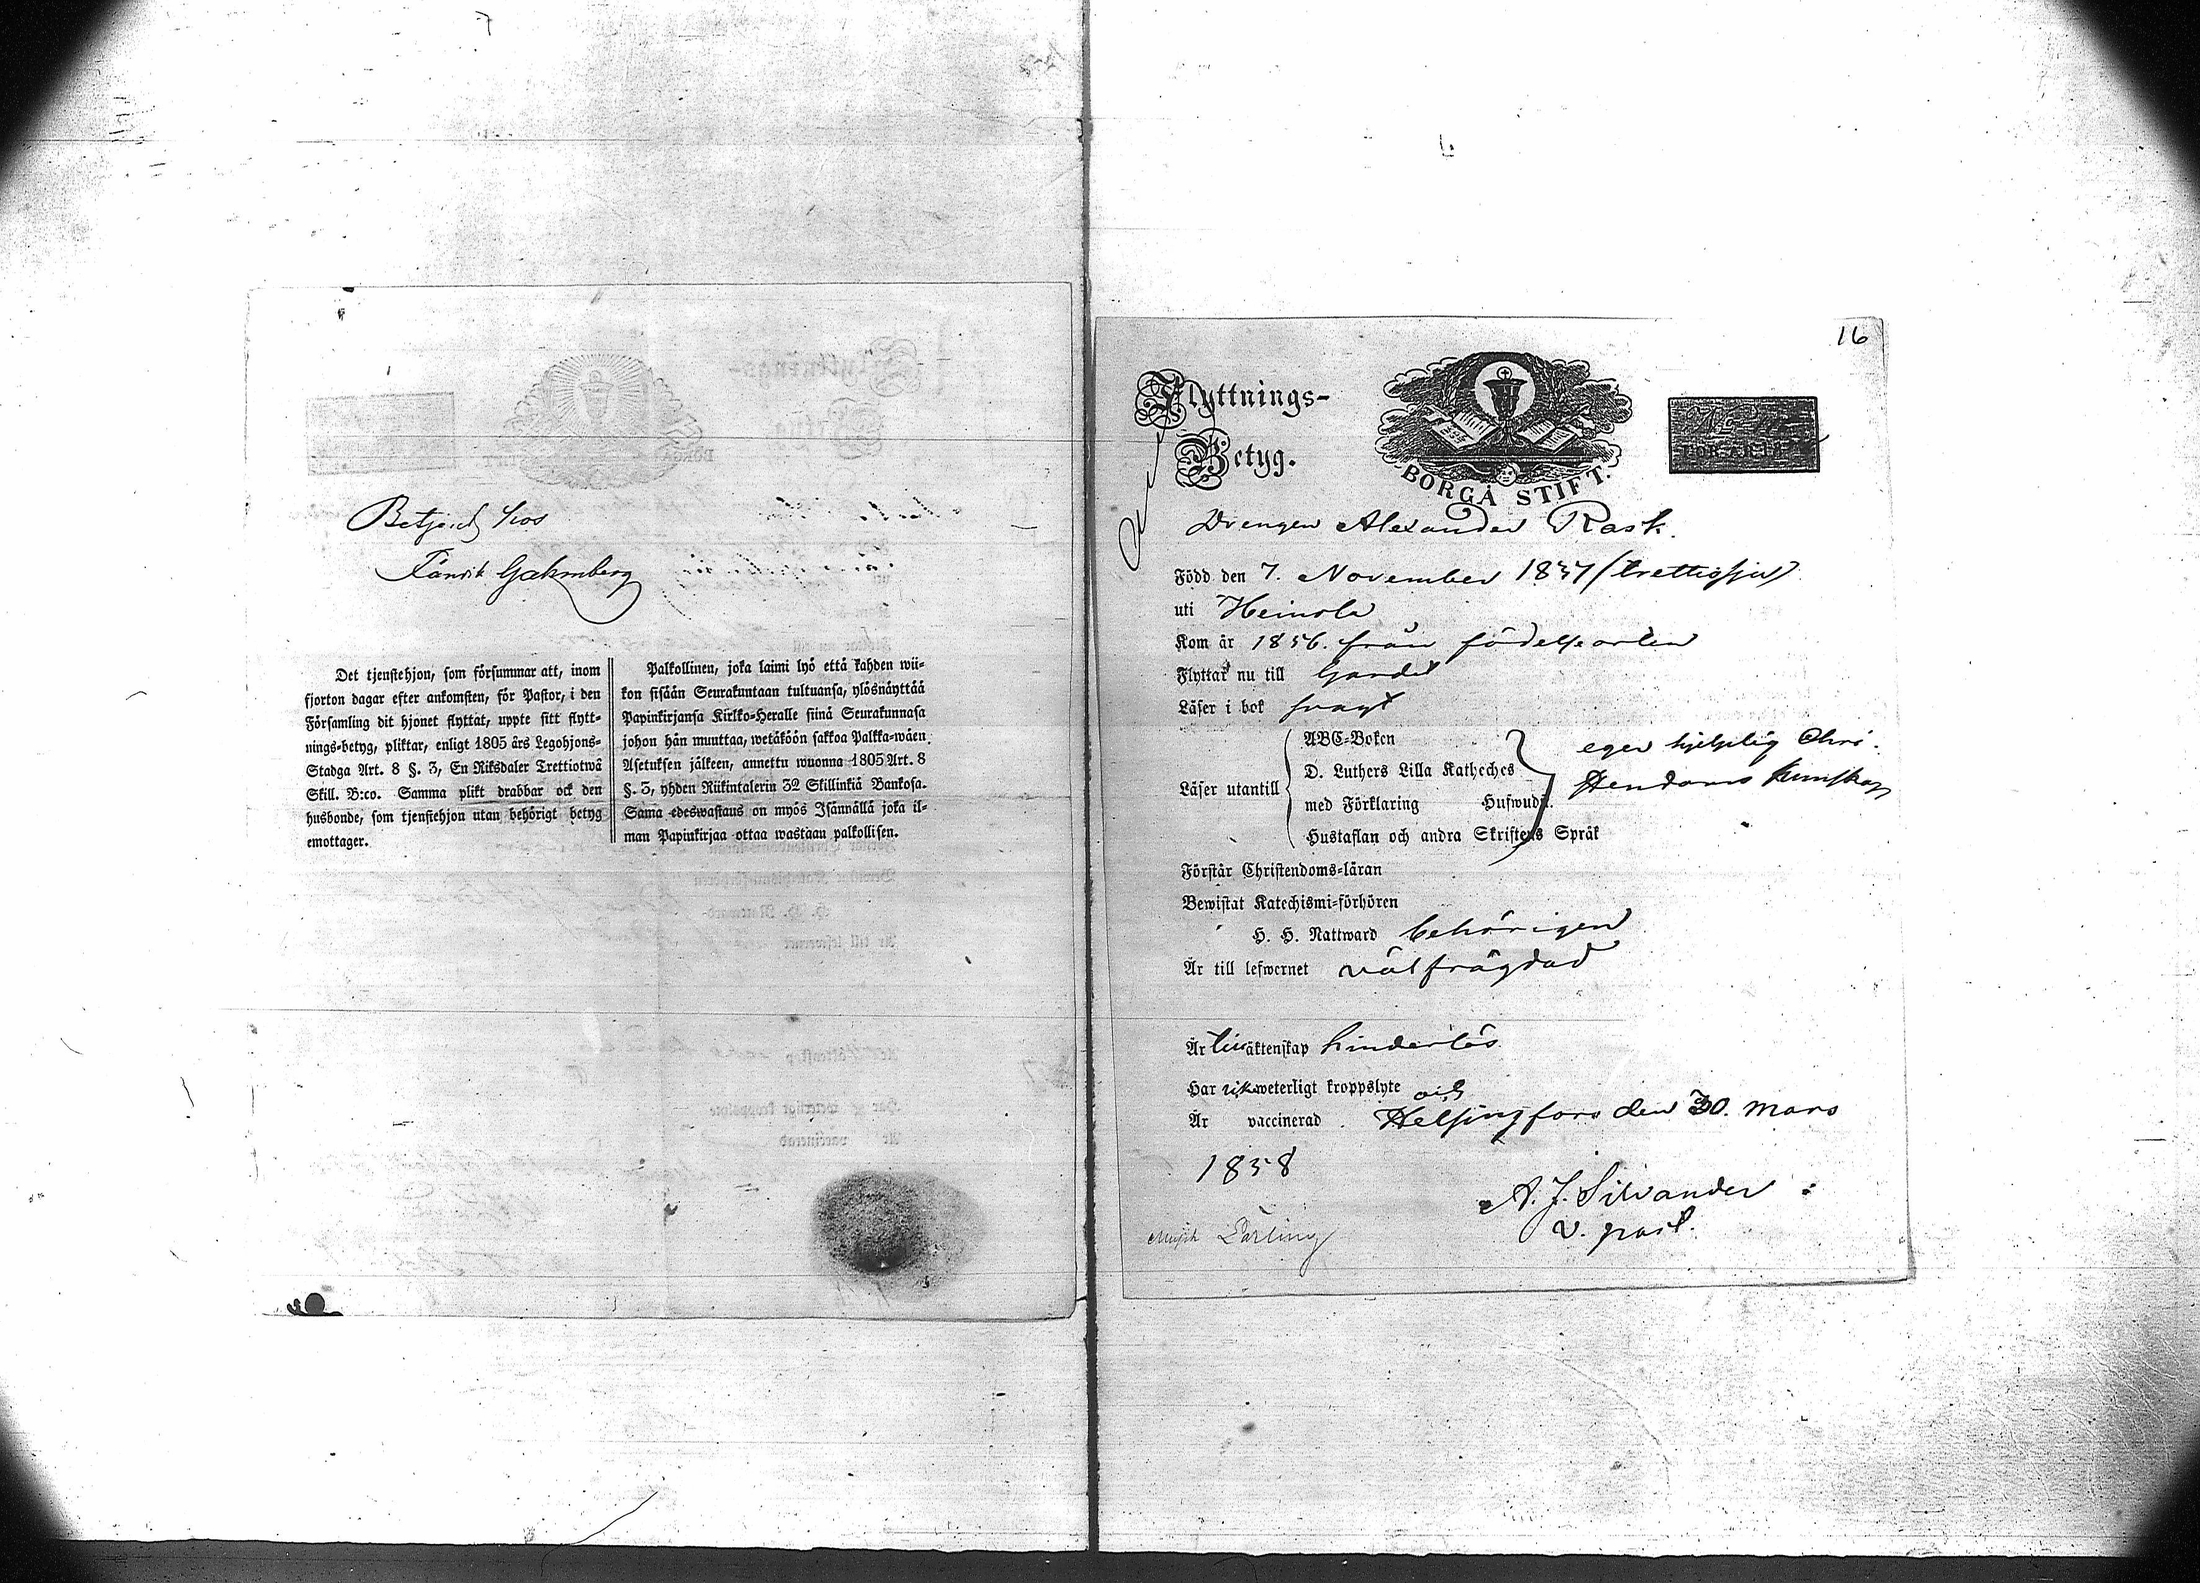 Betjent hos
Fänrik Gahmberg
Det tjenstehjon, som försummar att, inom
fjorton dagar efter ankomsten, för Pastor, i den
Församling dit hjonet flyttat, uppte sitt flytt-
nings-betyg, pliktar, enligt 1805 års Legohjons-
Stadga Art. 8 §. 3, En Riksdaler Trettiotwå
Skill. B:co. Samma plikt drabbar ock den
husbonde, som tjenstehjon utan behörigt betyg
emottager.
Palkollinen, joka laimi lyö että kahden wii-
kon sisään Seurakuntaan tultuansa, ylösnäyttää
Papinkirjansa Kirkko-Heralle siinä Seurakunnasa
johon hän muuttaa, wetäköön sakkoa Palkka-wäen
Asetuksen jälkeen, annettu wuonna 1805 Art. 8
§. 3, yhden Riikintalerin 32 Skillinkiä Bankosa.
Sama edeswastaus on myös Isännällä joka il-
man Papinkirjaa ottaa wastaan palkollisen.
16
Flyttnings-
Betyg.
BORGÅ STIFT.
Drengen Alexander Rask.
Född den 7. November 1837 (trettiosju)
uti Heinola
Kom år 1856. från födelseorten
Flyttar nu till Gardet
Läser i bok svagt
Läser utantill
ABC-Boken
D. Luthers Lilla Katheches
med Förklaring Hufwuds.
Hustaflan och andra Skriftens Språk
eger hjelplig Chri-
stendoms kunskap
Förstår Christendoms-läran
Bewistat Katechismi-förhören
H. H. Nattward behörigen
Är till lefwernet välfrägdad
Är till äktenskap hinderlös
Har icke weterligt kroppslyte och
Är vaccinerad. Helsingfors den 30. Mars
1858
A. J. Silvander
v. past.
Pärling